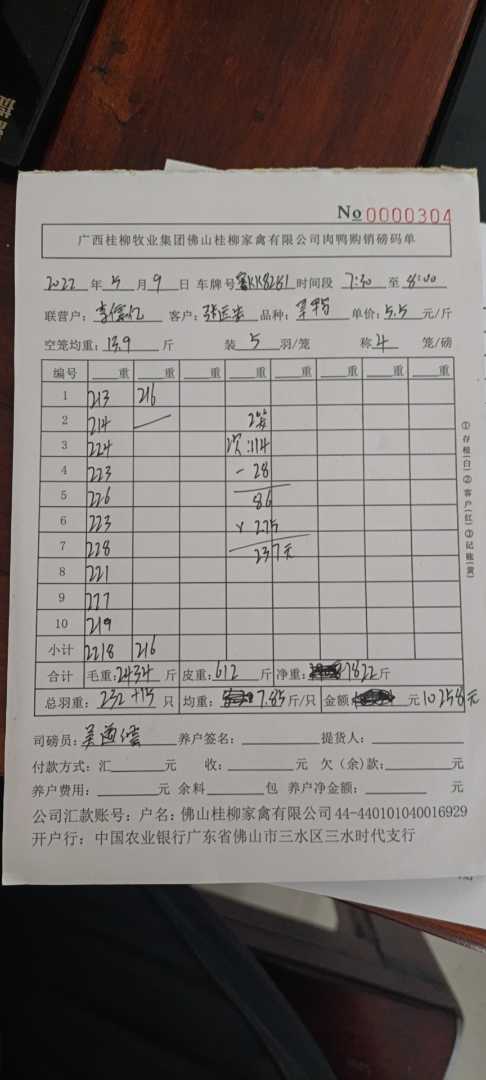 No 0000304
广西桂柳牧业集团佛山桂柳家禽有限公司肉鸭购销磅码单
2022 年 5 月 9 日 车牌号 KK8281 时间段 7:30 至 8:00
联营户: 李 亿 客户: 张 品种: 单价: 5.5 元/斤
空笼均重: 13.9 斤 装 5 羽/笼 称 4 笼/磅
编号 重 重 重 重 重 重 重 重
1 213 216
2 214 2笼
3 224 次:114
4 223 - 28
5 226 86
6 223 x 2.75
7 228 237元
8 221
9 227
10 219
小计 2218 216
合计 毛重: 2434 斤 皮重: 612 斤 净重: 1822 斤
总羽重: 232 +15 只 均重: 7.85 斤/只 金额 元 10258元
司磅员: 吴 养户签名: 提货人:
付款方式: 汇 元 收: 元 欠(余)款: 元
养户费用: 元 余料 包 养户净金额: 元
公司汇款账号: 户名: 佛山桂柳家禽有限公司 44-440101040016929
开户行: 中国农业银行广东省佛山市三水区三水时代支行
①存根(白)②客户(红)③记账(黄)